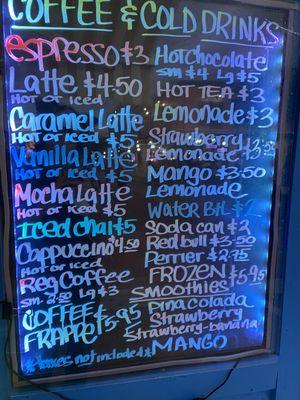 COFFEE & COLD DRINKS
espresso $3
Latte $4.50
HOT OR ICED
Caramel Latte
HOT or ICED $5
Vanilla Latte
HOT or ICED $5
Mocha Latte
HOT or ICED $5
Iced chai $5
Cappuccino $4.50
HOT or ICED
Reg Coffee
sm. 2.50 Lg $3
COFFEE
FRAPPE $5.95
*taxes not included*
Hot chocolate
sm $4 Lg $5
HOT TEA $3
Lemonade $3
Strawberry
Lemonade $3.50
Mango $3.50
Lemonade
WATER Btl $2
Soda can $2
Red bull $3.50
Perrier $2.75
FROZEN $5.95
Smoothies
Pina colada
Strawberry
Strawberry-banana
MANGO